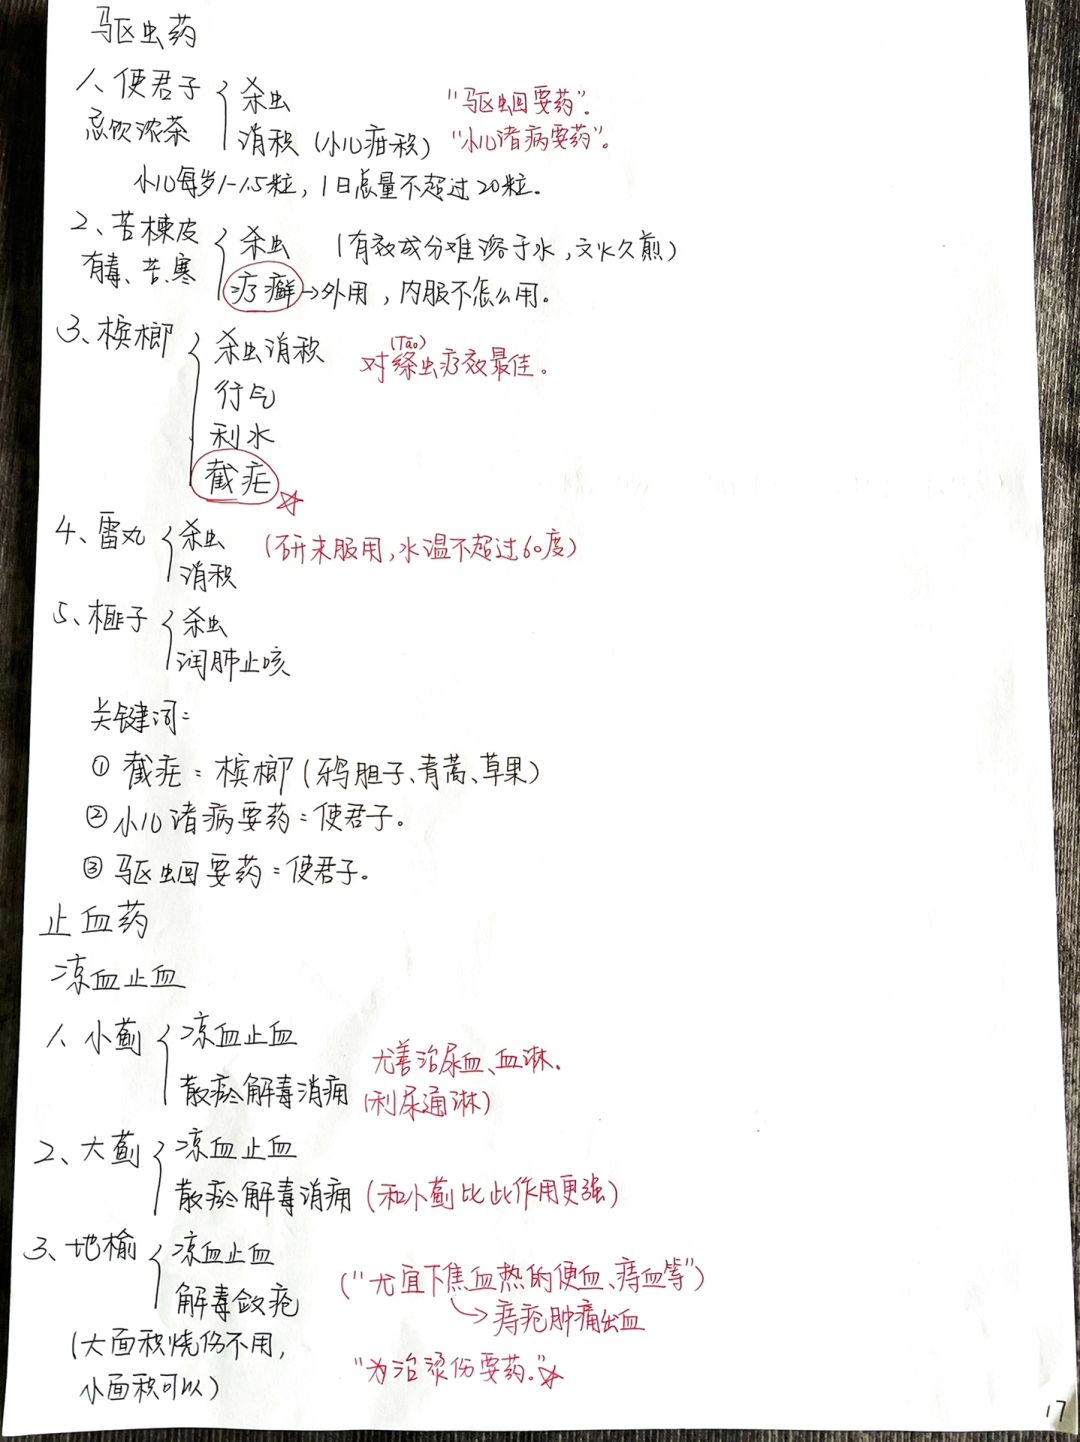 驱虫药
1、使君子 杀虫 "驱蛔要药"。
忌饮浓茶 消积(小儿疳积) "小儿诸病要药"。
小儿每岁1-1.5粒,1日总量不超过20粒。
2、苦楝皮 杀虫 (有效成分难溶于水,文火久煎)
有毒、苦、寒 疗癣→外用,内服不怎么用。
3、槟榔 杀虫消积 对绦(Tāo)虫疗效最佳。
行气
利水
截疟☆
4、雷丸 杀虫 (研末服用,水温不超过60度)
消积
5、榧子 杀虫
润肺止咳
关键词:
① 截疟:槟榔(鸦胆子、青蒿、草果)
② 小儿诸病要药:使君子。
③ 驱蛔要药:使君子。
止血药
凉血止血
1、小蓟 凉血止血 尤善治尿血、血淋。
散瘀解毒消痈 (利尿通淋)
2、大蓟 凉血止血
散瘀解毒消痈(和小蓟比此作用更强)
3、地榆 凉血止血 ("尤宜下焦血热的便血、痔血等")
解毒敛疮 →痔疮肿痛出血
(大面积烧伤不用, "为治烫伤要药。"☆
小面积可以)
17